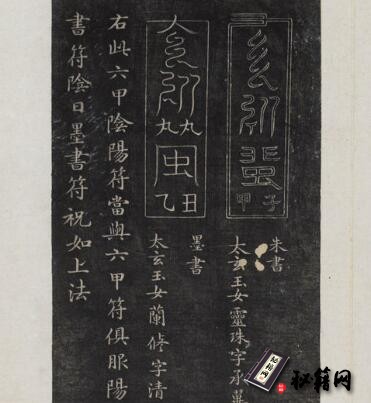 甲子
朱書
太玄玉女靈珠字承翼
乙丑
墨書
太玄玉女蘭修字清
右此六甲陰陽符當與六甲符俱服陽
書符陰日墨書符祝如上法
秘籍网